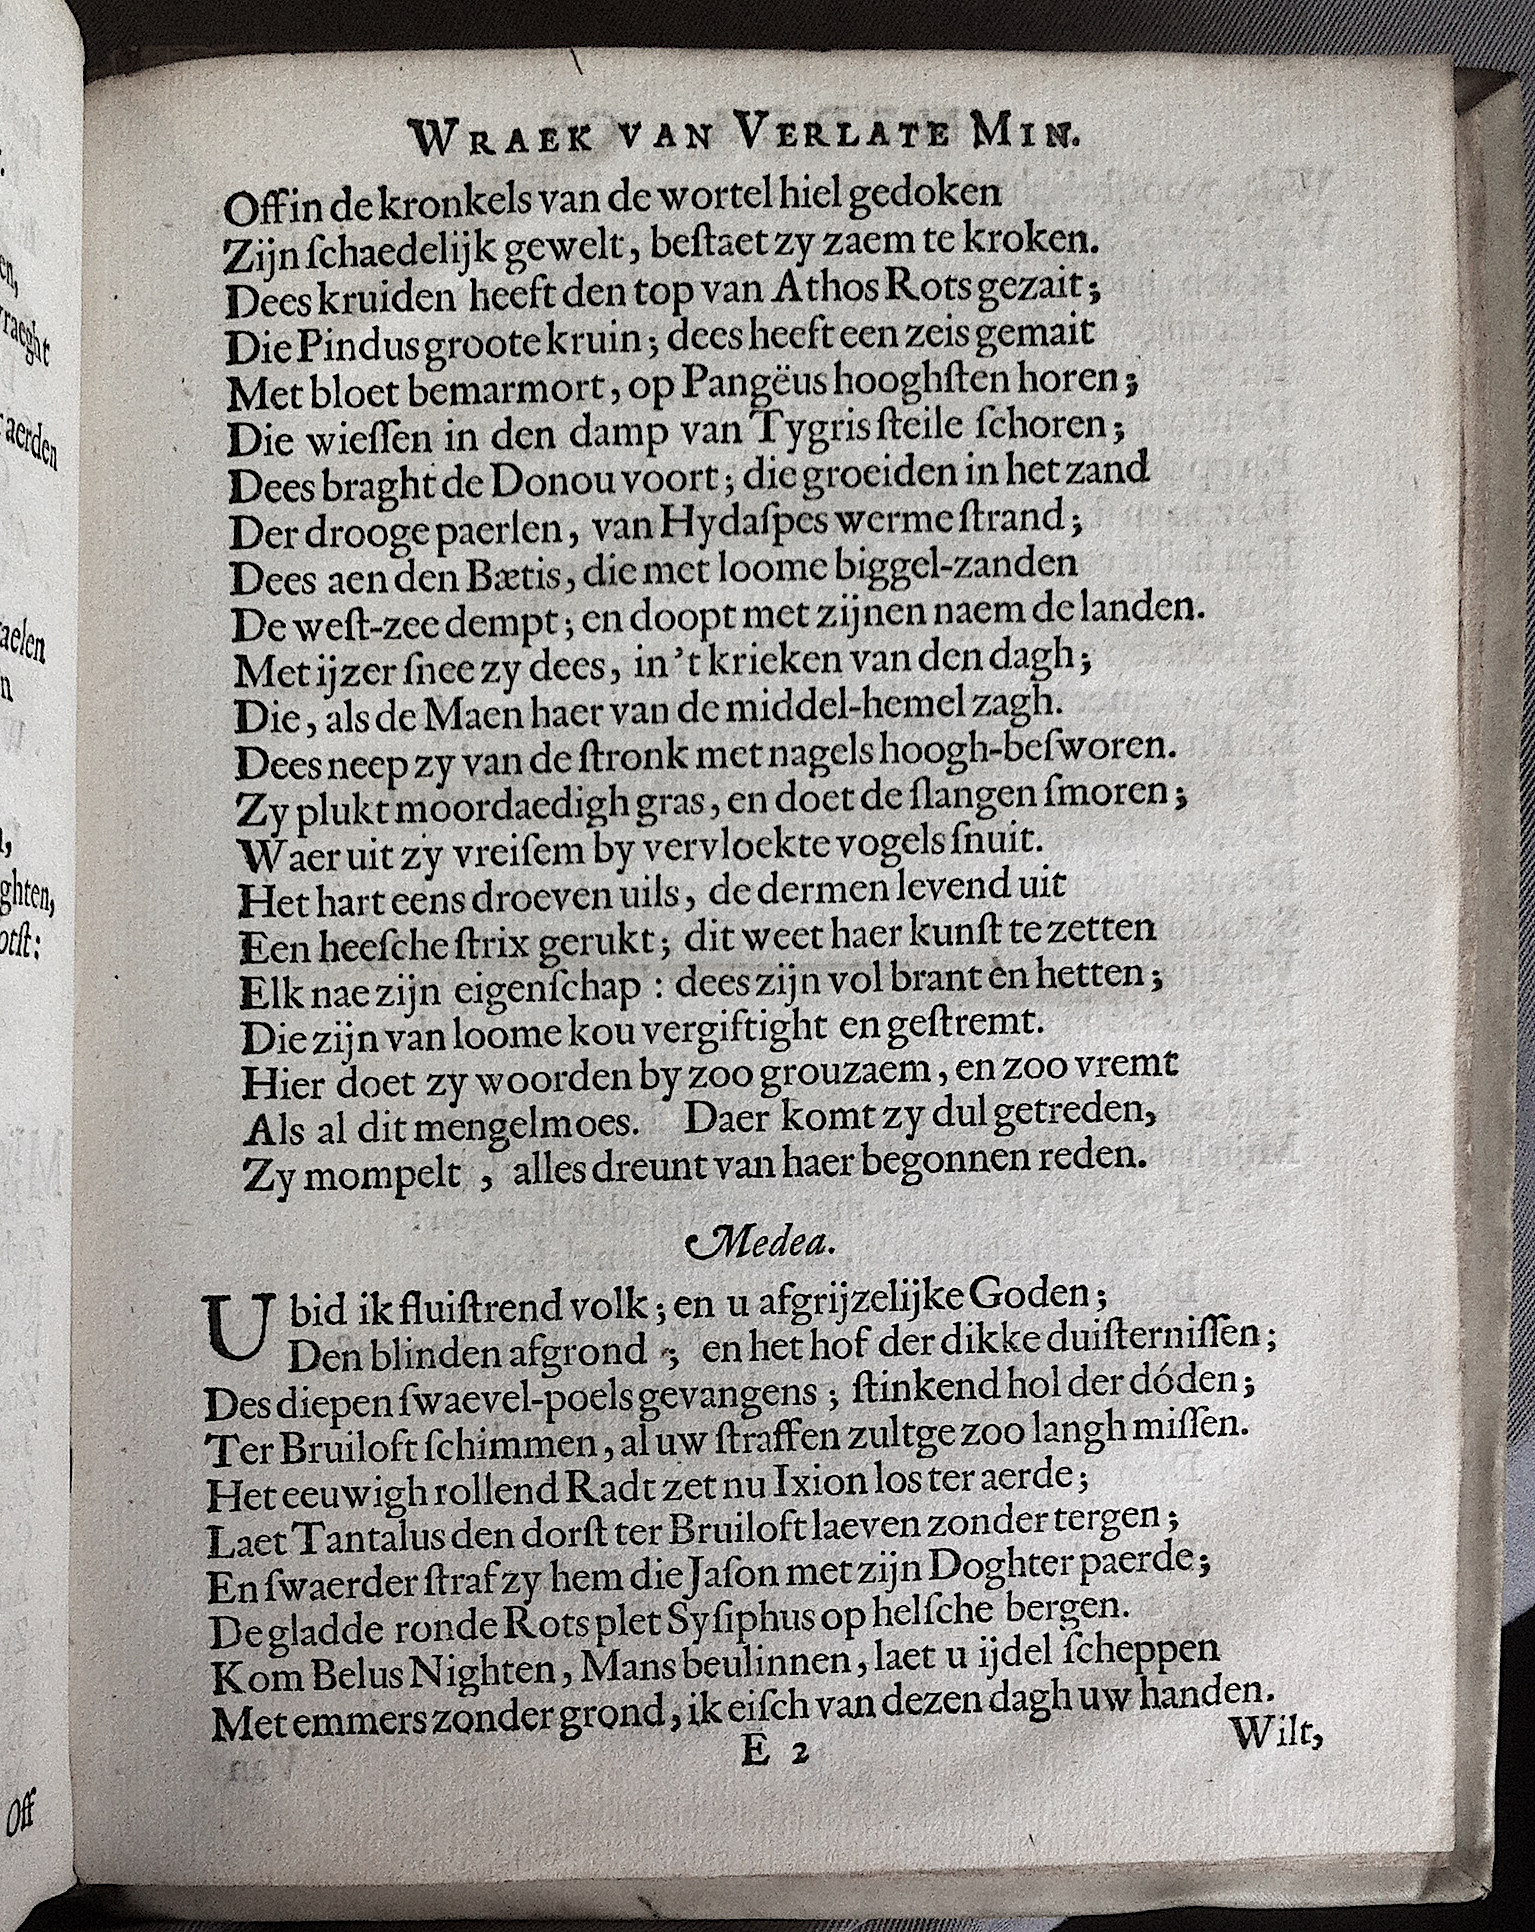 WRAEK VAN VERLATE MIN.
Off in de kronkels van de wortel hiel gedoken
Zijn ſchaedelijk gewelt, beſtaet zy zaem te kroken.
Dees kruiden heeft den top van Athos Rots gezait;
Die Pindus groote kruin; dees heeft een zeis gemait
Met bloet bemarmort, op Pangëus hooghſten horen;
Die wieſſen in den damp van Tygris ſteile ſchoren;
Dees braght de Donou voort; die groeiden in het zand
Der drooge paerlen, van Hydaſpes werme ſtrand;
Dees aen den Bætis, die met loome biggel-zanden
De weſt-zee dempt; en doopt met zijnen naem de landen.
Met ijzer ſnee zy dees, in 't krieken van den dagh;
Die, als de Maen haer van de middel-hemel zagh.
Dees neep zy van de ſtronk met nagels hoogh-beſworen.
Zy plukt moordaedigh gras, en doet de ſlangen ſmoren;
Waer uit zy vreiſem by vervloekte vogels ſnuit.
Het hart eens droeven uils, de dermen levend uit
Een heeſche ſtrix gerukt; dit weet haer kunſt te zetten
Elk nae zijn eigenſchap : dees zijn vol brant en hetten;
Die zijn van loome kou vergiftight en geſtremt.
Hier doet zy woorden by zoo grouzaem, en zoo vremt
Als al dit mengelmoes. Daer komt zy dul getreden,
Zy mompelt , alles dreunt van haer begonnen reden.
Medea.
U bid ik fluiſtrend volk; en u afgrijzelijke Goden;
Den blinden afgrond ; en het hof der dikke duiſterniſſen;
Des diepen ſwaevel-poels gevangens ; ſtinkend hol der dóden;
Ter Bruiloft ſchimmen, al uw ſtraffen zult ge zoo langh miſſen.
Het eeuwigh rollend Radt zet nu Ixion los ter aerde;
Laet Tantalus den dorſt ter Bruiloft laeven zonder tergen;
En ſwaerder ſtraf zy hem die Jaſon met zijn Doghter paerde;
De gladde ronde Rots plet Syſiphus op helſche bergen.
Kom Belus Nighten, Mans beulinnen, laet u ijdel ſcheppen
Met emmers zonder grond, ik eiſch van dezen dagh uw handen.
E 2
Wilt,